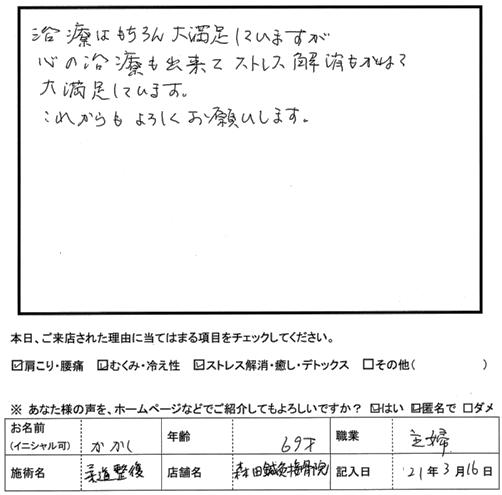 治療はもちろん大満足していますが
心の治療も出来てストレス解消もかねて
大満足しています。
これからもよろしくお願いします。
本日、ご来店された理由に当てはまる項目をチェックしてください。
☑肩こり・腰痛 ☑むくみ・冷え性 ☑ストレス解消・癒し・デトックス □その他( )
※ あなた様の声を、ホームページなどでご紹介してもよろしいですか? ☑はい ☑匿名で □ダメ
お名前 (イニシャル可) かかし 年齢 69才 職業 主婦
施術名 柔道整復 店舗名 森田鍼灸接骨院 記入日 '21年3月16日